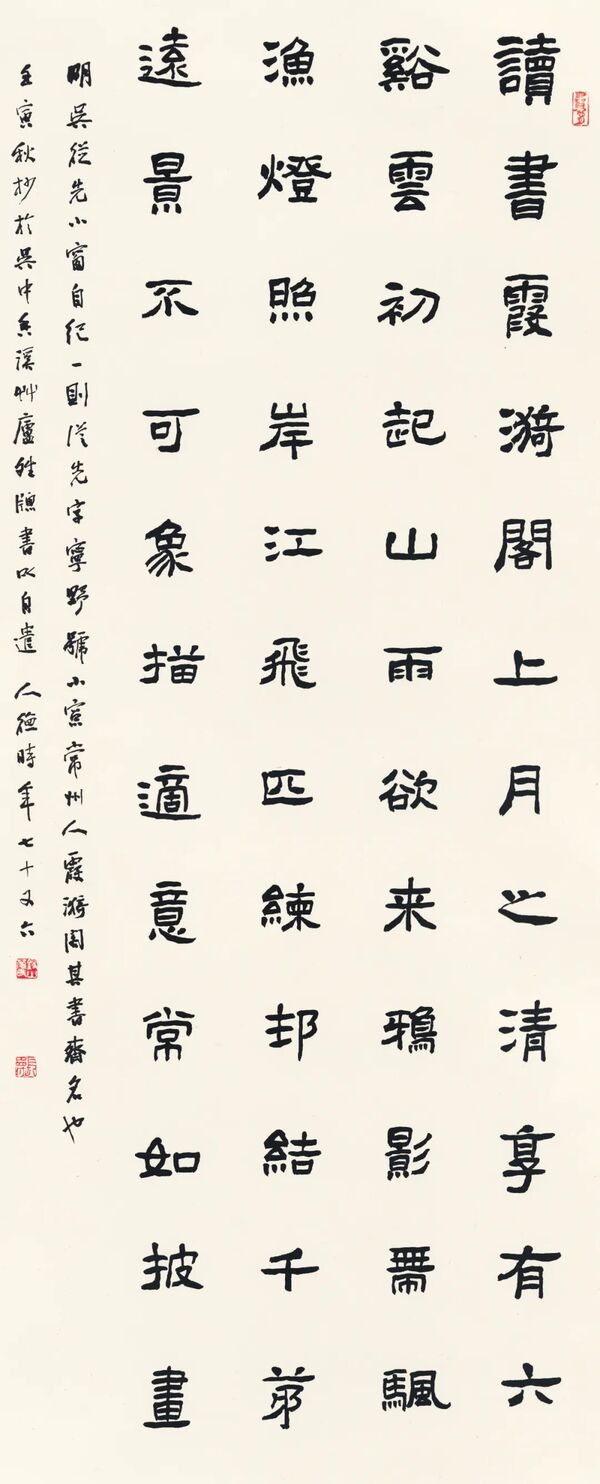 讀書霞漪閣上月之清享有六
谿雲初起山雨欲来鴉影帶颿
漁燈照岸江飛匹練邨結千茅
遠景不可象描適意常如披畫
明吳從先小窗自紀一則從先字寧野號小窗常州人霞漪閣其書齋名也
壬寅秋杪於吳中香溪艸廬牕書以自遣 人德時年七十又六